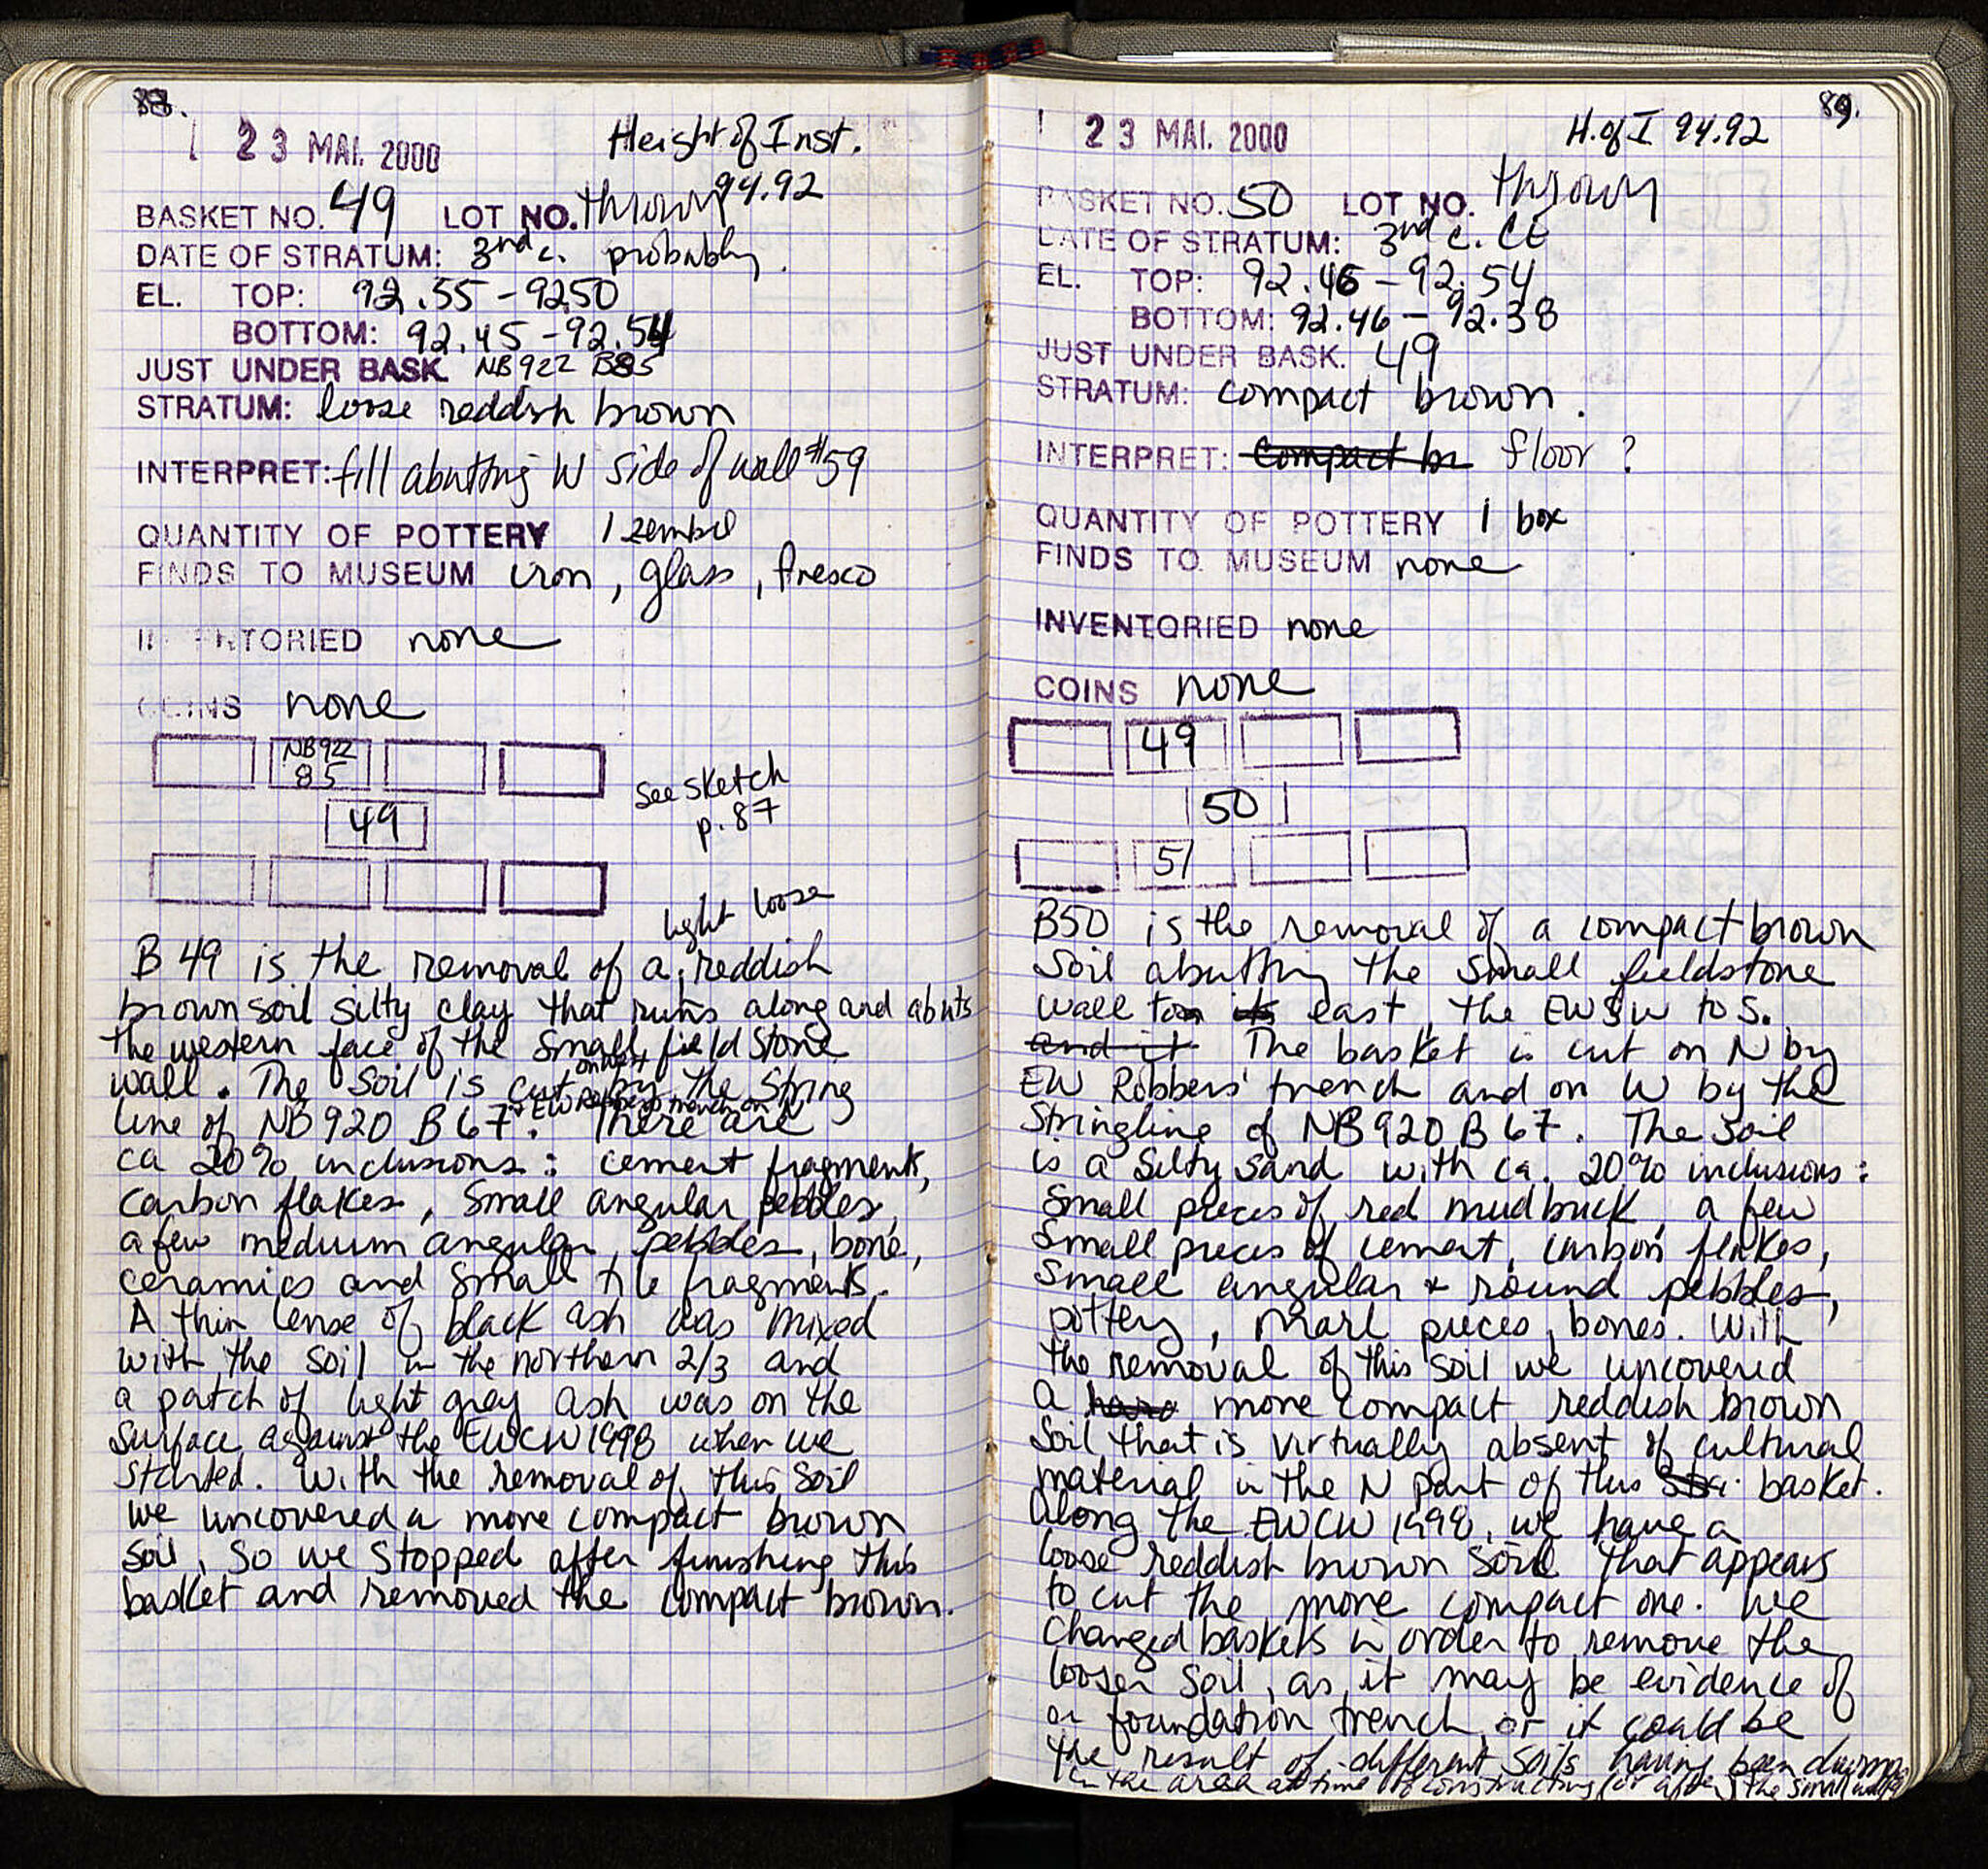 88.
23 MAI. 2000
Height of Inst.
94.92
BASKET NO. 49 LOT NO. thrown
DATE OF STRATUM: 3nd c. probably.
EL. TOP: 92.55 - 92.50
BOTTOM: 92.45 - 92.54
JUST UNDER BASK. NB922 B85
STRATUM: loose reddish brown
INTERPRET: fill abutting W side of wall #59
QUANTITY OF POTTERY 1 zembil
FINDS TO MUSEUM iron, glass, fresco
INVENTORIED none
COINS none
NB922
85
49
See sketch
p. 87
light loose
B 49 is the removal of a, reddish
brown soil silty clay that runs along and abuts
the western face of the small field stone
on West
wall. The soil is cut by the string
+ EW Robbers trench on N
line of NB920 B67. There are
ca 20% inclusions: cement fragments,
carbon flakes, small angular pebbles,
a few medium angular pebbles, bone,
ceramics and small tile fragments.
A thin lense of black ash was mixed
with the soil in the northern 2/3 and
a patch of light grey ash was on the
surface against the EWCW1998 when we
started. With the removal of this soil
we uncovered a more compact brown
soil, so we stopped after finishing this
basket and removed the compact brown.
89.
23 MAI. 2000
H. of I 94.92
BASKET NO. 50 LOT NO. thrown
DATE OF STRATUM: 3nd c. CE
EL. TOP: 92.46 - 92.54
BOTTOM: 92.46 - 92.38
JUST UNDER BASK. 49
STRATUM: compact brown.
INTERPRET: Compact br floor?
QUANTITY OF POTTERY 1 box
FINDS TO MUSEUM none
INVENTORIED none
COINS none
49
50
51
B50 is the removal of a compact brown
soil abutting the small fieldstone
wall to its east, the EW to S.
and it The basket is cut on N by
EW Robbers' trench and on W by the
Stringline of NB920 B67. The soil
is a silty sand with ca. 20% inclusions:
small pieces of red mudbrick, a few
small pieces of cement, carbon flakes,
small angular + round pebbles,
pottery, marl pieces, bones. With
the removal of this soil we uncovered
a hard more compact reddish brown
soil that is virtually absent of cultural
material in the N part of this basket.
Along the EWCW 1998, we have a
loose reddish brown soil that appears
to cut the more compact one. We
changed baskets in order to remove the
looser soil, as it may be evidence of
a foundation trench, or it could be
the result of different soils having been dump
in the area at time of constructing (or after) the small wall